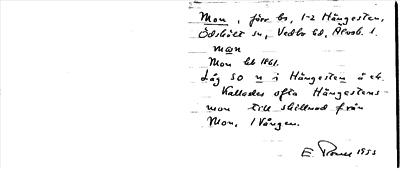 Mon, förr bs, 1-2 Hängesten,
Ödshult sn, Vedbo hd, Älvsb. l.
män
Mon hb 1861.
Låg SO n i Hängesten ä ek.
Kallades ofta Hängestens
mon till skillnad från
Mon, 1 Vången.
E. 1953